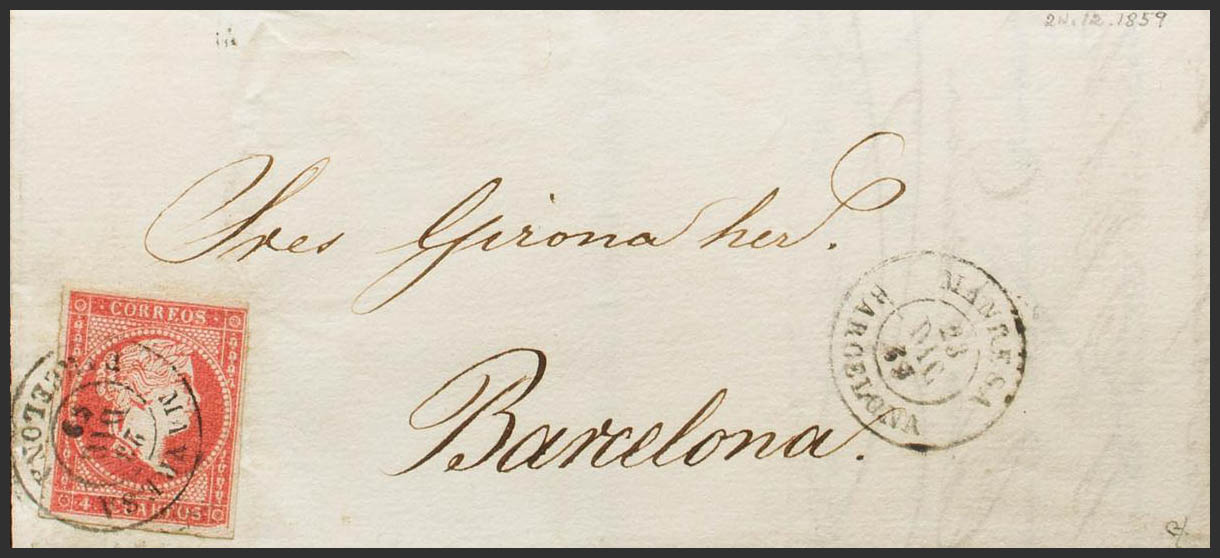 24.12.1859
Sres Girona her.
Barcelona.
MANRESA
23
DIC
59
BARCELONA
CORREOS
4 CUARTOS
MANRESA
DIC
59
BARCELONA